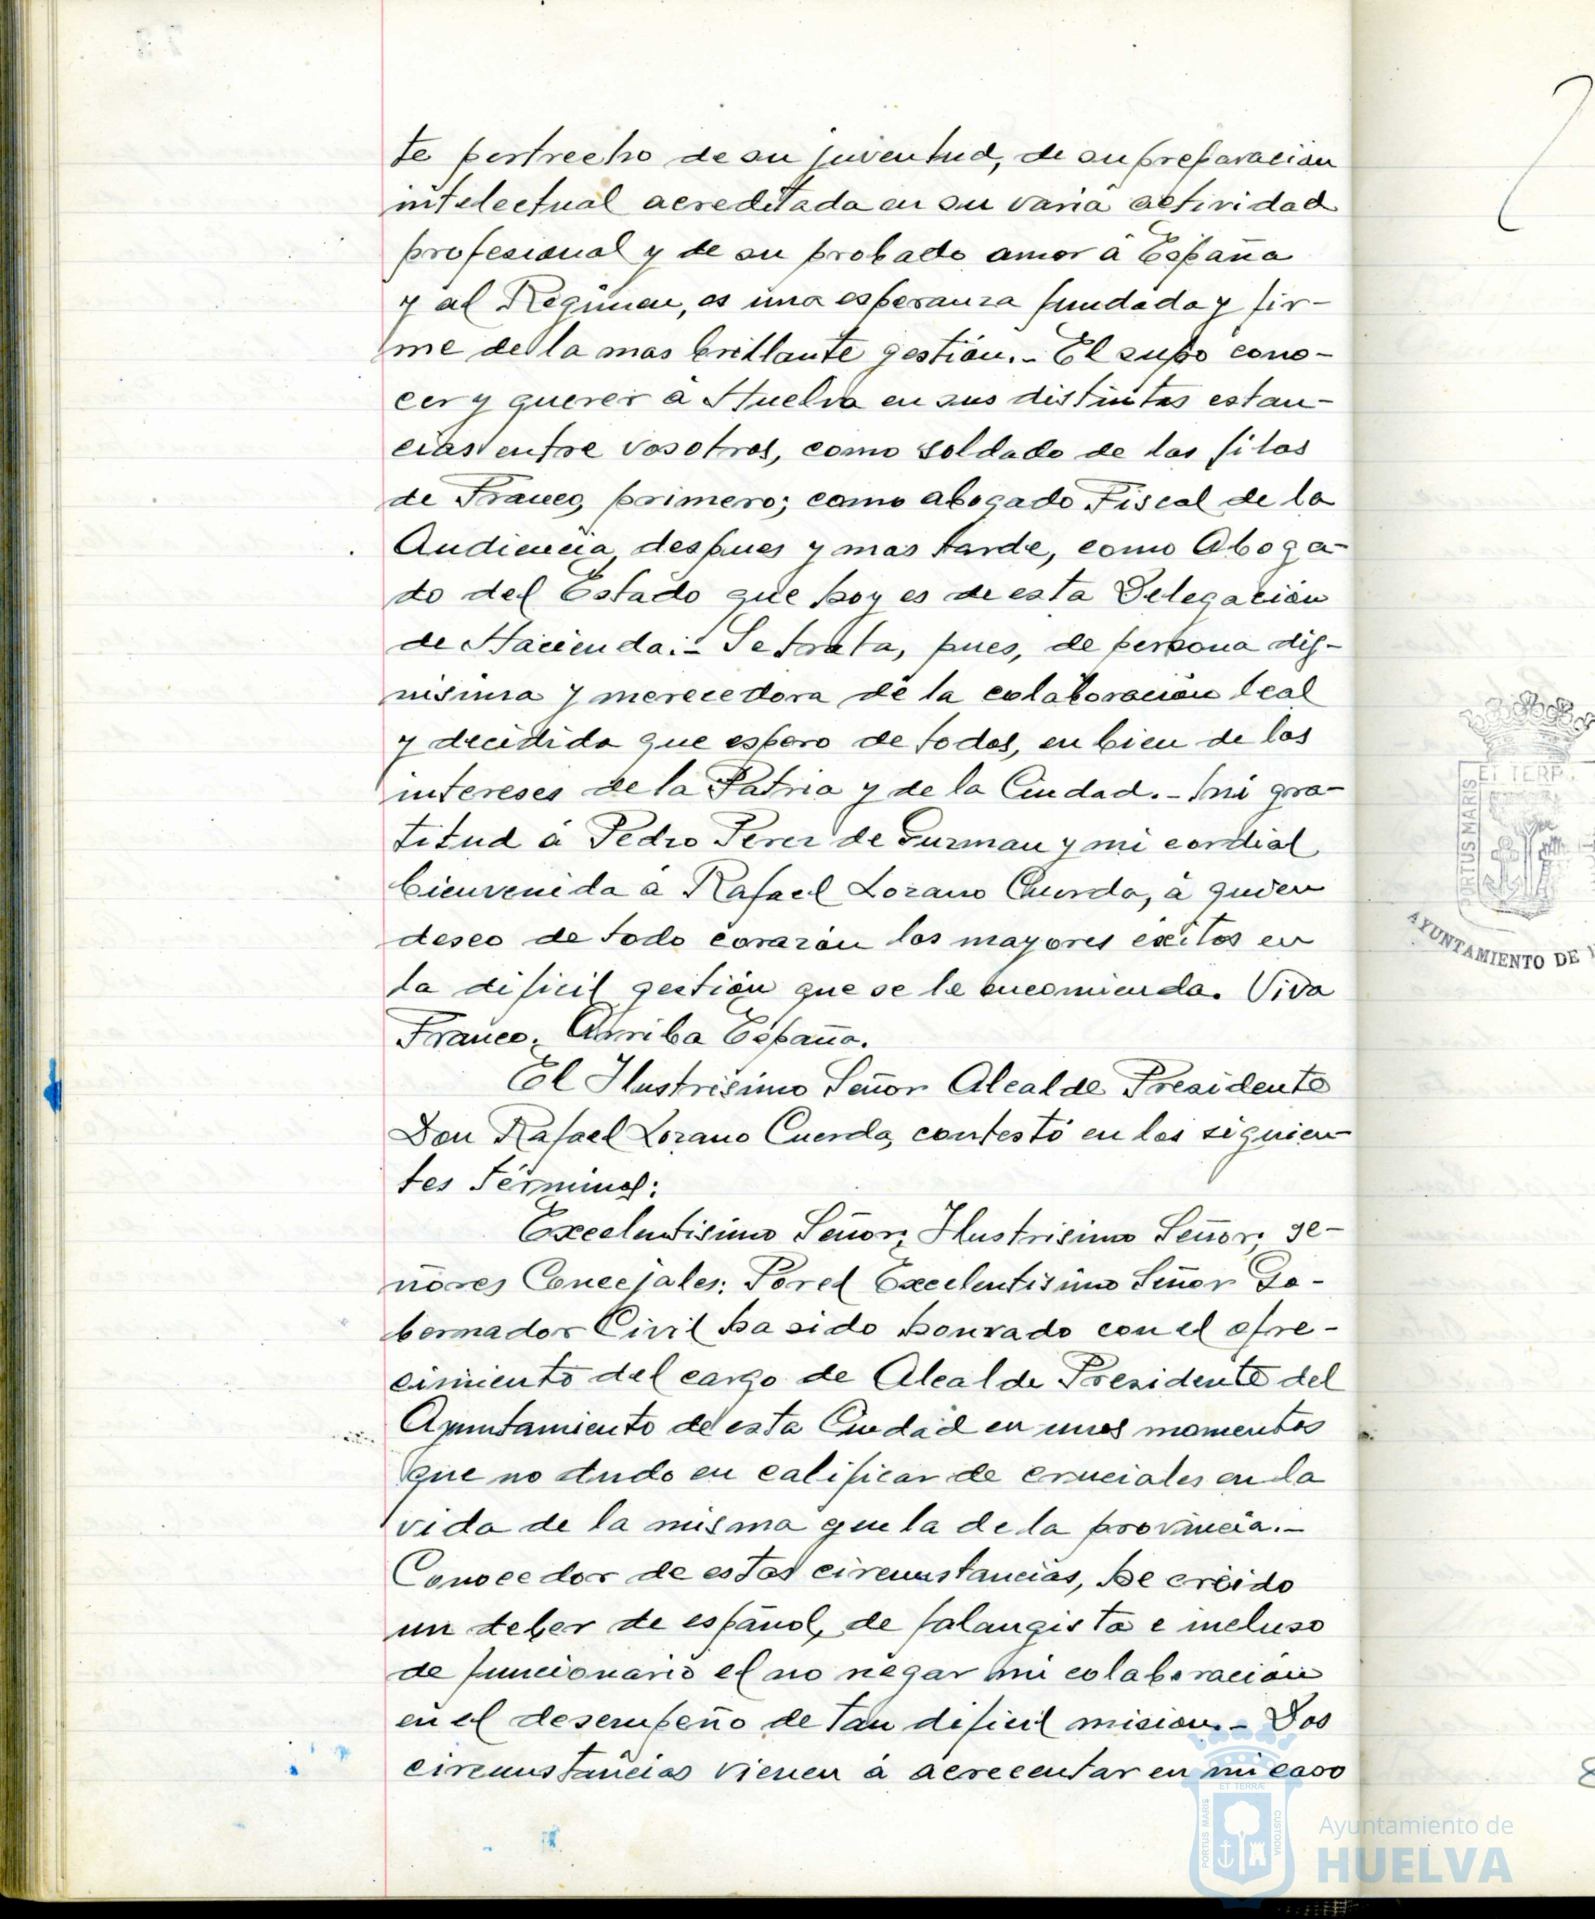 te pertrecho de su juventud, de su preparación
intelectual acreditada en su varia actividad
profesional y de su probado amor á España
y al Régimen, es una esperanza fundada y fir-
me de la mas brillante gestión.- El supo cono-
cer y querer á Huelva en sus distintas estan-
cias entre vosotros, como soldado de las filas
de Franco, primero; como abogado Fiscal de la
Audiencia, despues y mas tarde, como Aboga-
do del Estado que hoy es de esta Delegación
de Hacienda.- Se trata, pues, de persona dig-
nisima y merecedora de la colaboración leal
y decidida que espero de todos, en bien de los
intereses de la Patria y de la Ciudad.- Mi gra-
titud á Pedro Perez de Guzman y mi cordial
bienvenida á Rafael Lozano Cuerda, á quien
deseo de todo corazón los mayores éxitos en
la dificil gestión que se le encomienda. Viva
Franco. Arriba España.
El Ilustrisimo Señor Alcalde Presidente
Don Rafael Lozano Cuerda, contestó en los siguien-
tes términos:
Excelentisimo Señor; Ilustrisimo Señor; se-
ñores Concejales: Por el Excelentisimo Señor Go-
bernador Civil ha sido honrado con el ofre-
cimiento del cargo de Alcalde Presidente del
Ayuntamiento de esta Ciudad en unos momentos
que no dudo en calificar de cruciales en la
vida de la misma que la de la provincia.-
Conocedor de estas circunstancias, he creido
un deber de español, de falangista e incluso
de funcionario el no negar mi colaboración
en el desempeño de tan dificil mision.- Dos
circunstancias vienen á acrecentar en mi caso
ET TERR
PORTUS MARIS
AYUNTAMIENTO DE
ET TERRÆ
PORTUS MARIS
CUSTODIA
Ayuntamiento de
HUELVA